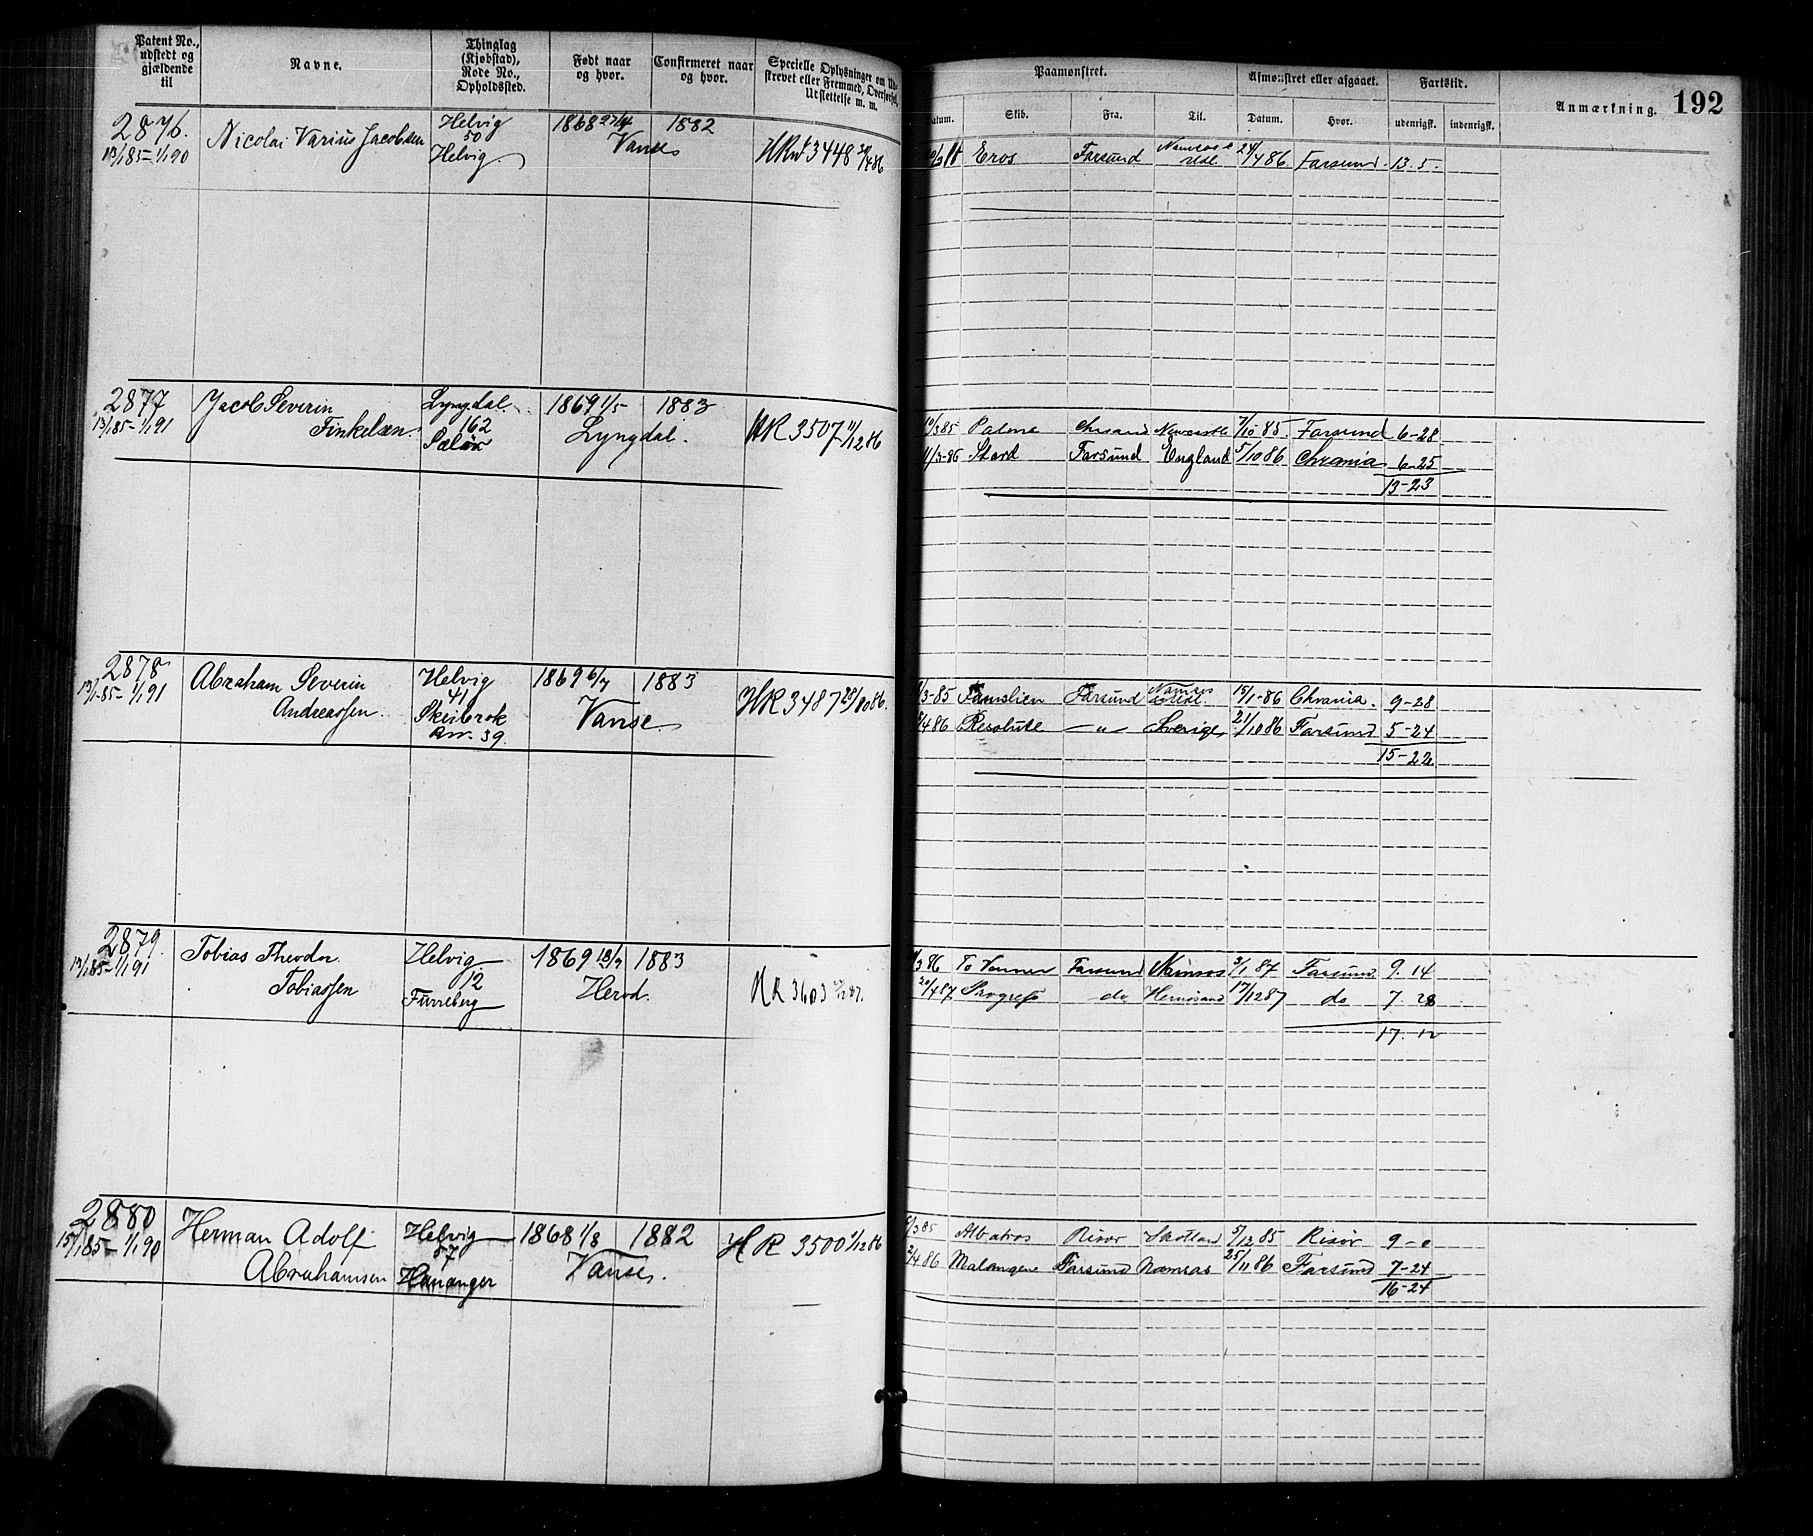 Patent No., udstedt og gjældende til
Navne.
Thinglag (Kjøbstad), Rode No., Opholdssted.
Født naar og hvor.
Confirmeret naar og hvor.
Specielle Oplysninger om
strevet eller Fremmed, Overførsel,
Utslettelse m. m.
Paamønstret.
Afmønstret eller afgaaet.
Fartstid.
Anmærkning.
192
Datum.
Skib.
Fra.
Til.
Datum.
Hvor.
udenrigsk.
indenrigsk.
2876.
13/1 85 - 1/1 90
Nicolai Varius Jacobsen
Helvig
50
Helvig
1868 27/4
1882
Vanse
3448
Eros
Farsund
24/4 86
Farsund
13. 5.
2877
13/1 85 - 1/1 91
Jacob Severin
Finkelsen
Lyngdal
162
1869 1/5
1883
Lyngdal.
HR 3507 11/12 86
11/3 85
Palme
Newcastle
7/10 85
Farsund
6-28
11/3-86
Farsund
England
5/10 86
Chrania
6-25
13-23
2878
13/1-85 - 1/1 91
Abraham Severin
Andreassen
Helvig
41
Skeibrok
39
1869 6/7
1883
Vanse
HR 3487 28/10 86.
3-85
Familien
Farsund
Namsos
15/1-86
Chrania.
9-28
/4 86
Resolute
— " —
Sverige
21/10 86
Farsund
5-24
15-22
2879.
13/1 85 - 1/1 91
Tobias Theodor
Tobiassen
Helvig
12
Furreberg
1869 18/7
1883
Herod.
HR 3603
/3 86
To Venner
Farsund
Namsos
3/1 87
Farsund
9. 14
20/4 87
Progress
do
Hernøsand
17/12 87
do
7. 28
17. 12
2880
15/1 85 - 1/1 90
Herman Adolf
Abrahamsen
Helvig
57
Hananger
1868 1/8
1882
Vanse.
HR 3500 1/12 86
/3 85
Albatros
Risør
Skotland
5/12 85
Risør
9-0
2/4 86
Malangene
Farsund
Namsos
25/11 86
Farsund
7-24
16-24